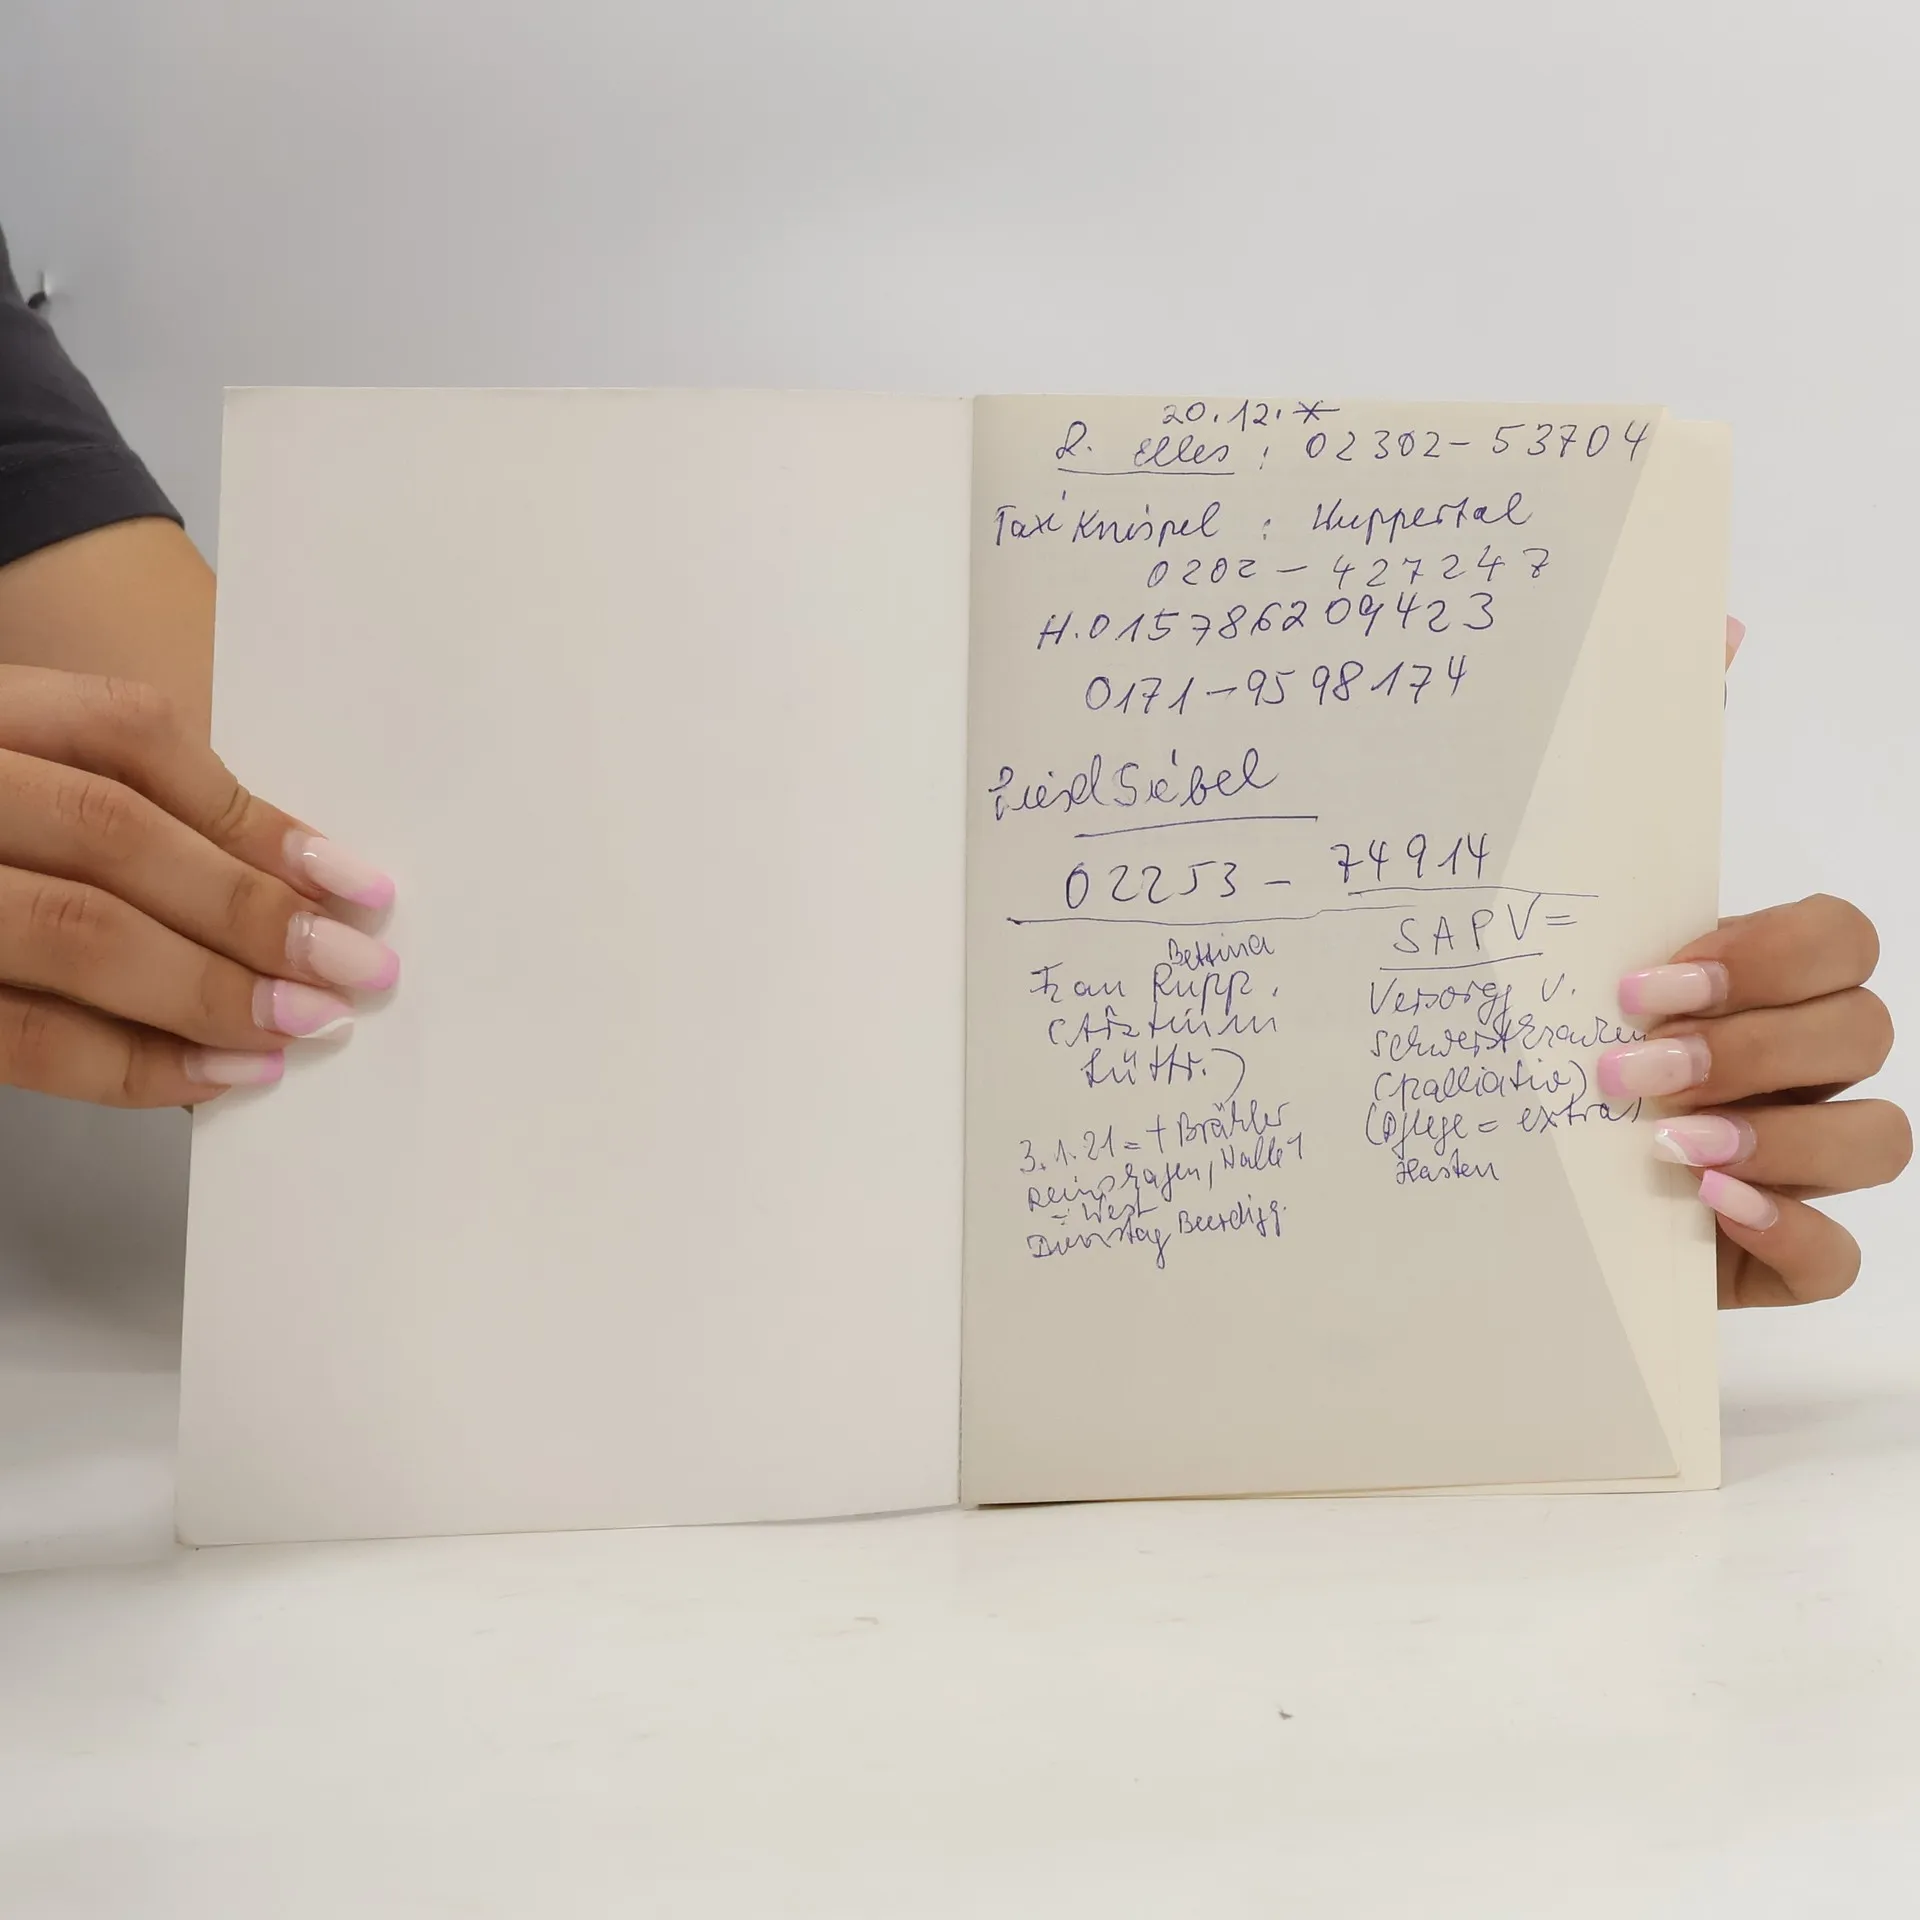 20.12.*
R. Elles: 02302-53704
Taxi Knispel: Wuppertal
0202-427247
H.015786209423
0171-9598174
Siebel
02253-74914
Bettina
Frau Rupp,
(Ärztinin
Lüttr.)
3.1.21=+Brähler
Reinshagen, Halle 1
= West
Dienstag Beerdigg.
SAPV=
Versorgg v.
Schwerstkranken
(palliativ)
(Pflege = extra)
Hasten